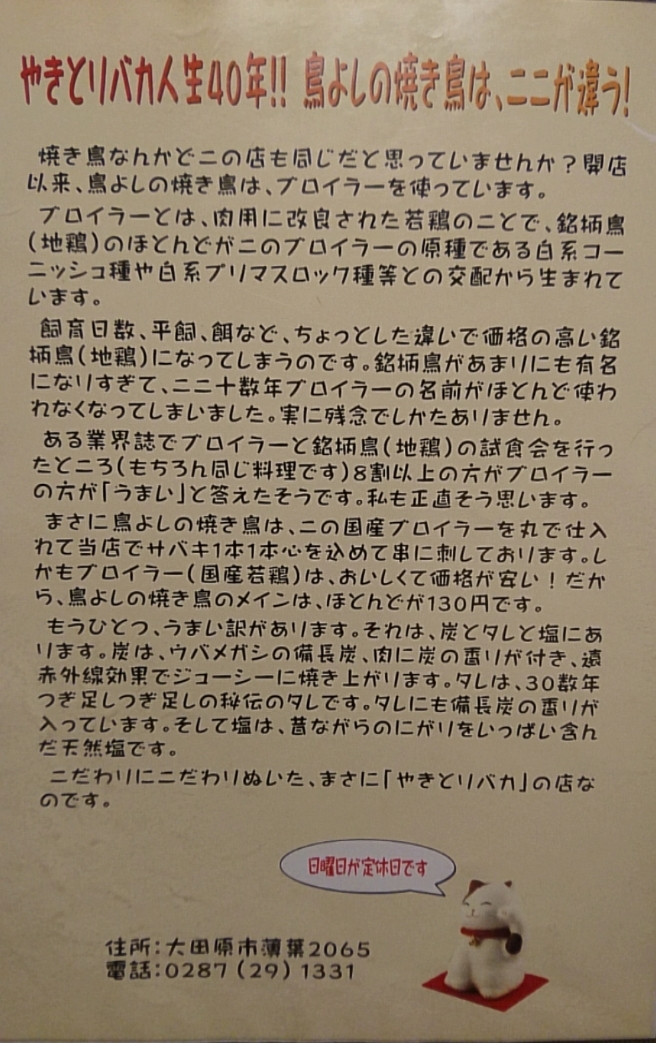 やきとりバカ人生40年!! 鳥よしの焼き鳥は、ここが違う!
焼き鳥なんかどこの店も同じだと思っていませんか？開店
以来、鳥よしの焼き鳥は、ブロイラーを使っています。
ブロイラーとは、肉用に改良された若鶏のことで、銘柄鳥
(地鶏)のほとんどがこのブロイラーの原種である白系コー
ニッシュ種や白系プリマスロック種等との交配から生まれて
います。
飼育日数、平飼、餌など、ちょっとした違いで価格の高い銘
柄鳥(地鶏)になってしまうのです。銘柄鳥があまりにも有名
になりすぎて、ここ十数年ブロイラーの名前がほとんど使わ
れなくなってしまいました。実に残念でしかたありません。
ある業界誌でブロイラーと銘柄鳥(地鶏)の試食会を行っ
たところ(もちろん同じ料理です)8割以上の方がブロイラー
の方が「うまい」と答えたそうです。私も正直そう思います。
まさに鳥よしの焼き鳥は、この国産ブロイラーを丸で仕入
れて当店でサバキ1本1本心を込めて串に刺しております。し
かもブロイラー(国産若鶏)は、おいしくて価格が安い！だか
ら、鳥よしの焼き鳥のメインは、ほとんどが130円です。
もうひとつ、うまい訳があります。それは、炭とタレと塩にあ
ります。炭は、ウバメガシの備長炭、肉に炭の香りが付き、遠
赤外線効果でジューシーに焼き上がります。タレは、30数年
つぎ足しつぎ足しの秘伝のタレです。タレにも備長炭の香りが
入っています。そして塩は、昔ながらのにがりをいっぱい含ん
だ天然塩です。
こだわりにこだわりぬいた、まさに「やきとりバカ」の店な
のです。
日曜日が定休日です
住所：大田原市薄葉2065
電話：0287(29)1331